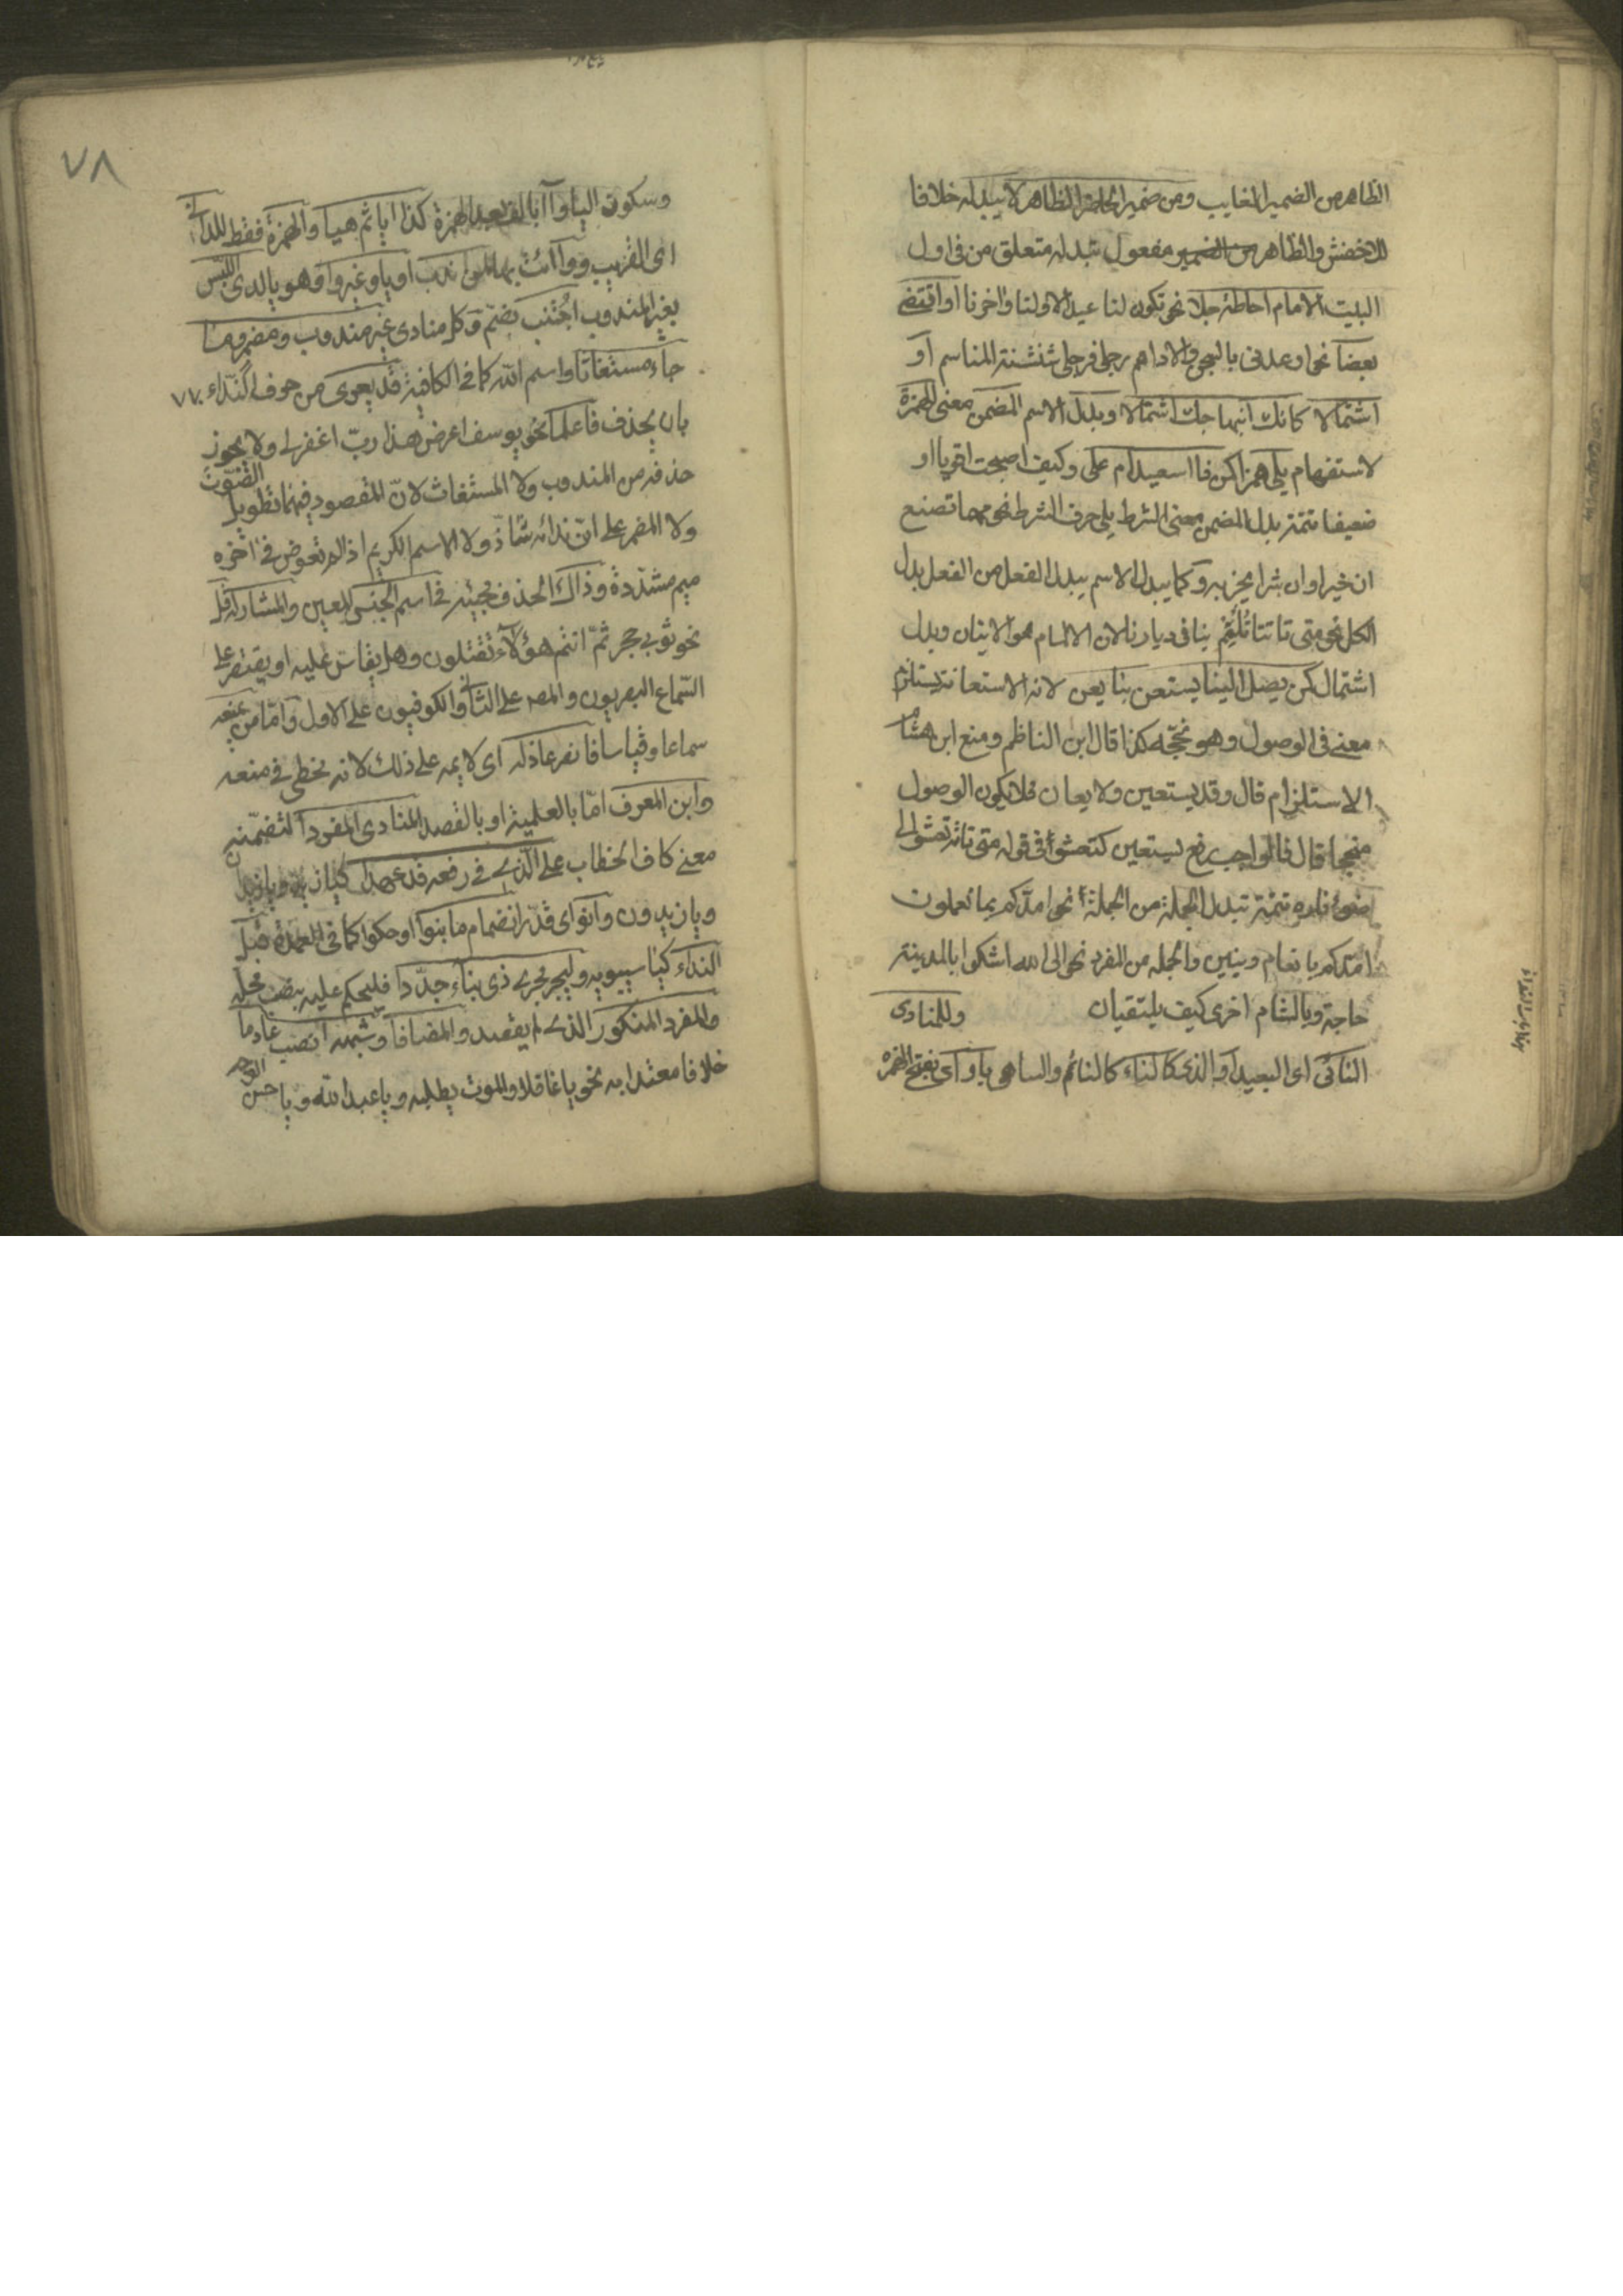 الظاهر من الضمير الغايب ومن ضمير الحاضر الظاهر لا تبدله خلافا
للاخفش والظاهر من الضمير مفعول تبدله متعلق من في اول
البيت الا ما احاطة جلا نحو تكون لنا عيدا لاولنا واخرنا او اقتضى
بعضا نحو اوعدني بالسجن والاداهم رجلي فرجلي شثنة المناسم او
اشتمالا كانك ابتهاجك استمالا وبدل الاسم المضمن معنى الهمزة
لاستفهام يلي همزا كمن ذا اسعيد ام علي وكيف اصبحت اقويا او
ضعيفا تتمة بدل المضمن معنى الشرط يلي حرف الشرط نحو مهما تصنع
ان خيرا وان شرا تجز به وكما يبدل الاسم يبدل الفعل من الفعل بدل
الكل نحو متى تاتنا تلمم بنا في ديارنا لان الالمام هو الاتيان وبدل
اشتمال كمن يصل الينا يستعن بنا يعن لانه الاستعانة يستلزم
معنى في الوصول وهو نجحه كذا قال ابن الناظم ومنع ابن هشام
الاستلزام قال وقد يستعين ولا يعان فلا يكون الوصول
منجحا قال فالواجب رفع يستعين كتعشو في قوله متى تاته تعشو الى
ضوء ناره تتمة تبدل الجملة من الجملة نحو امدكم بما تعلمون
امدكم بانعام وبنين والجمله من المفرد نحو الى الله اشكو بالمدينة
حاجة وبالشام اخرى كيف يلتقيان وللمنادى
النائي اي البعيد او الذي كالناء كالنائم والساهي يا واي بفتح الهمزه
٧٨
وسكون اليا وآ بالف بعد الهمزة كذا ايا ثم هيا والهمزة فقط للداني
اي القريب ووا ائت بها لمن ندب او يا وغير وا وهو يا لدى اللبس
بغير المندوب اجتنب بضم وكل منادى غير مندوب ومضمر وما
جاء مستغاثا واسم الله كما في الكافية قد يعرى من حروف النداء
٧٧
بان يحذف فاعلما نحو يوسف اعرض هذا رب اغفر لي ولا يجوز
حذفه من المندوب ولا المستغاث لان المقصود فيهما تطويل الصوت
ولا المضمر على ان ندائه شاذ ولا الاسم الكريم اذا لم تعوض في اخره
ميم مشددة وذاك الحذف مجيئه في اسم الجنس المعين والمشار له قل
نحو ثوبي حجر ثم انتم هؤلاء تقتلون وهل يقاس عليه او يقتصر على
السماع البصريون والمصـ على الثاني والكوفيون على الاول واما من يمنعه
سماعا وقياسا فانصر عاذله اي لايمه على ذلك لانه مخطي في منعه
وابن المعرف اما بالعلمية او بالقصد المنادى المفردا لتضمنه
معنى كاف الخطاب على الذي في رفعه قد عهدا كيا زيد ويا زيدان
ويا زيدون وانو اي قدر انضمام ما بنوا او حكوا كما في العمدة قبل
النداء كيا سيبويه وليجر مجرى ذي بناء جددا فليحكم عليه بنصب محله
والمفرد المنكور الذي لم يقصد والمضافا وشبهه انصب عادما
خلافا معتدا به نحو يا غافلا والموت يطلبه ويا عبد الله ويا حسن الوجه